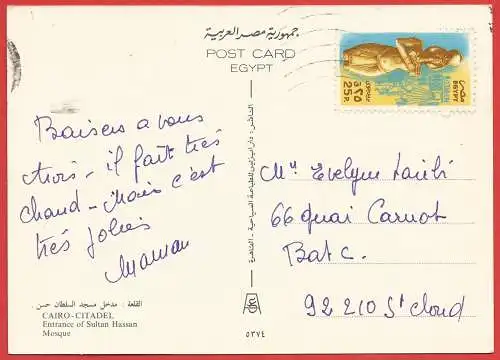 جمهورية مصر العربية
POST CARD
EGYPT
مصر
EGYPT
٢٥
25 P.
Baisers a vous
trois - il fait très
chaud - Mais c'est
très jolies
Maman
Mme Evelyne
66 Quai Carnot
Bat C.
92210 St Cloud
القلعة : مدخل مسجد السلطان حسن .
CAIRO - CITADEL
Entrance of Sultan Hassan
Mosque
٥٣٧٤